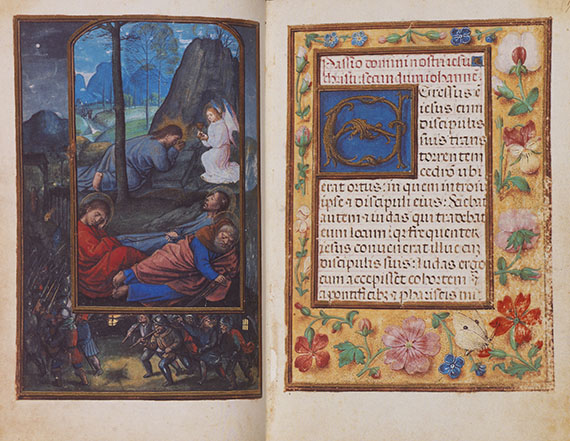 Passio domini nostri iesu
christi: secundum iohanne
Egressus e
iesus cum
discipulis
suis trans
torentem
cedron ubi
erat ortus: in quem introiu
ipse & discipuli eius: Sciebat
autem iudas qui tradebat
eum locum: q frequenter
iesus convenerat illuc cum
discipulis suis: Iudas ergo
cum accepisset cohortem
a pontificib & phariseis mi